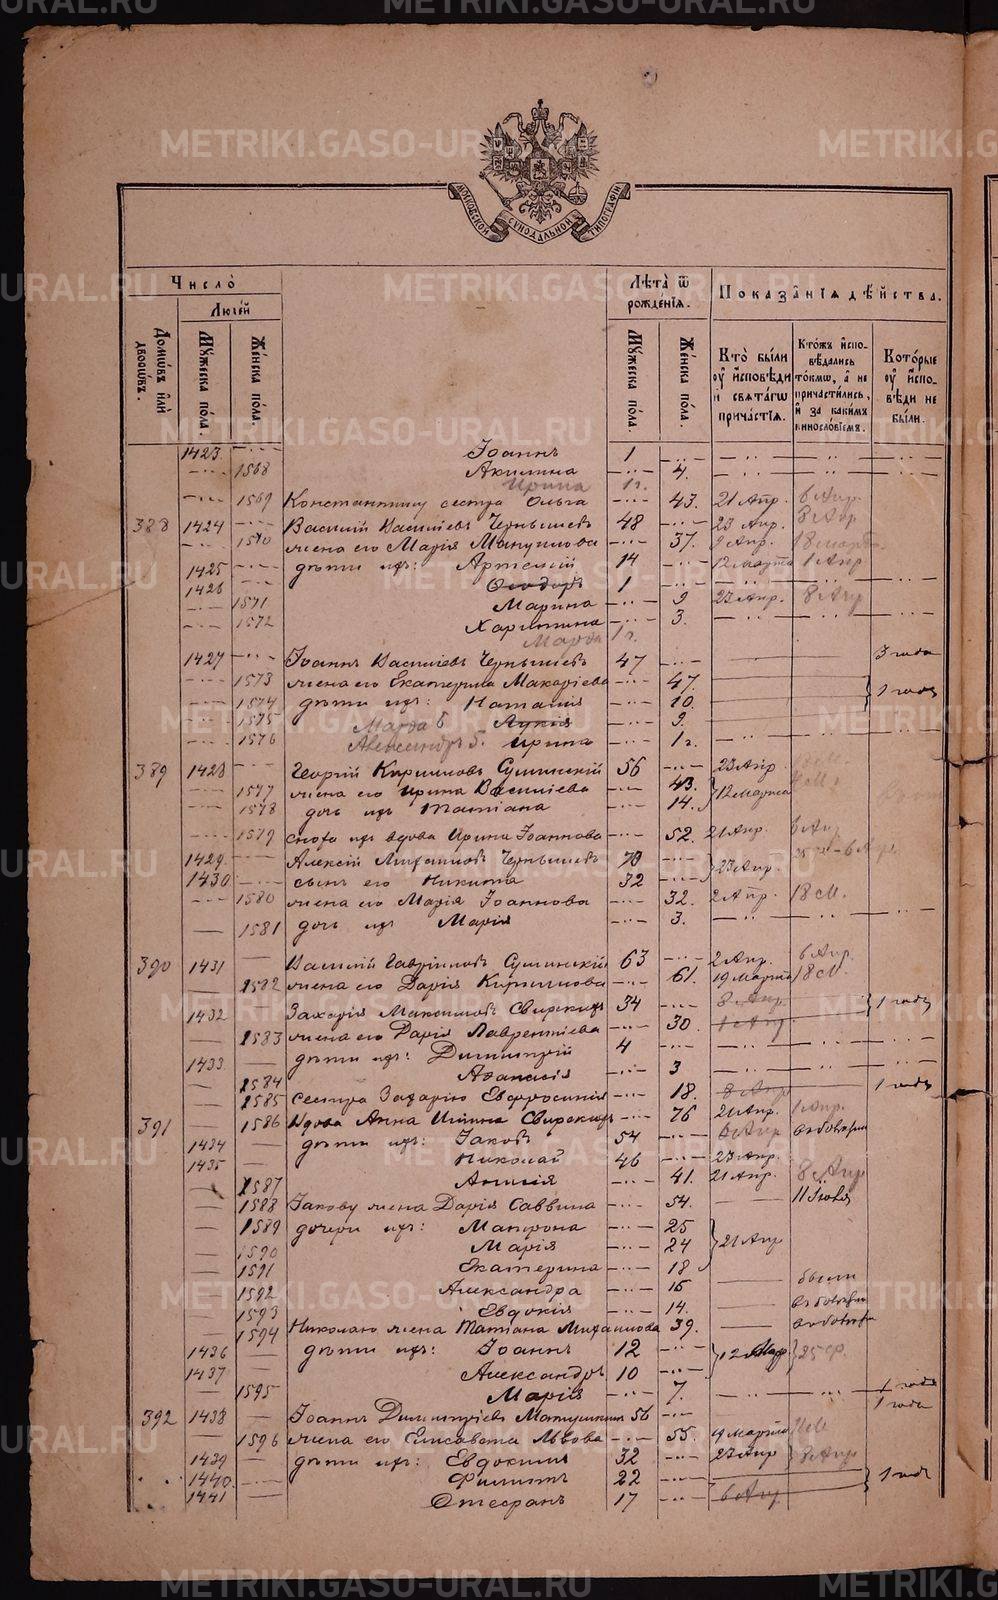 МОСКОВСКОЙ СѴНОДАЛЬНОЙ ТИПОГРАФІИ
Число̀
Людей
Домѡвъ и҆лѝ дворѡвъ.
Мꙋжеска пола.
Женска пола.
Лѣта̀ ѿ рожде́нїѧ.
Мꙋжеска пола.
Женска пола.
Показа̑нїѧ дѣ́йства.
Кто̀ бы́ли оу҆ и҆сповѣди и҆ свѧта́гѡ прича́стїѧ.
Кто́жъ и҆сповѣдались то́кмѡ, а҆ не причасти́лись, и҆ за каки́мъ винослові́емъ.
Кото́рые оу҆ и҆сповѣди не бы́ли.
1423 Іоаннъ 1
1568 Акилина 4.
Ирина 1 г.
1569 Константину сестра Ольга 43. 21 Апр. 6 Апр.
388 1424 Василій Василіевъ Чернышевъ 48 23 Апр. 8 Апр
1570 жена его Марія Мануилова 37. 2 Апр. 18 март
1425 дѣти ихъ: Артемій 14 12 Марта 1 Апр
1426 Ѳеодоръ 1
1571 Марина 9 23 Апр. 8 Апр
1572 Харитина 3.
Марѳа 1 г.
1427 Іоаннъ Василіевъ Чернышевъ 47 3 года
1573 жена его Екатерина Макаріева 47. 1 годъ
1574 дѣти ихъ: Наталія 10.
1575 Марѳа б Лукія 9.
1576 Александръ б. Ирина 1 г.
389 1428 Георгій Кирилловъ Сушинскій 56 23 Апр.
1577 жена его Ирина Василіева 43. 12 Марта
1578 дочь ихъ Татіана 14.
1579 сноха ихъ вдова Ирина Іоаннова 52. 21 Апр. 6 Апр
1429 Алексій Михаиловъ Чернышевъ 70 23 Апр.
1430 сынъ его Никита 32
1580 жена его Марія Іоаннова 32. 2 Апр. 18 М.
1581 дочь ихъ Марія 3.
390 1431 Василій Гавріиловъ Сушинскій 63 2 Апр. 6 Апр.
1582 жена его Дарія Кириллова 61. 19 Марта 18 М.
1432 Захарія Максимовъ Свирскихъ 34 8 Апр. 1 годъ
1583 жена его Дарія Лаврентіева 30. 1 Апр
1433 дѣти ихъ: Димитрій 4
1584 Аѳанасія 3
1585 Сестра Захарію Евфросинія 18. 8 Апр 1 годъ
391 1586 Вдова Анна Ильина Свирскихъ 76 21 Апр. 1 Апр.
1434 дѣти ихъ: Іаковъ 54 6 Апр
1435 Николай 46 23 Апр.
1587 Анисія 41. 21 Апр. 8 Апр
1588 Іакову жена Дарія Саввина 54. 11 Іюня
1589 дочери ихъ: Матрона 25
1590 Марія 24 21 Апр
1591 Екатерина 18
1592 Александра 16 были
1593 Евдокія 14.
1594 Николаю жена Татіана Михаилова 39.
1436 дѣти ихъ: Іоаннъ 12 12 Мар. 25 ф.
1437 Александръ 10
1595 Марія 7. 1 года
392 1438 Іоаннъ Димитріевъ Матушкинъ 56 1 года
1596 жена его Елисавета Львова 55. 9 Марта
1439 дѣти ихъ: Евдокимъ 32 23 Апр 8 Апр
1440 Филиппъ 22 1 годъ
1441 Стефанъ 17 6 Апр
METRIKI.GASO-URAL.RU